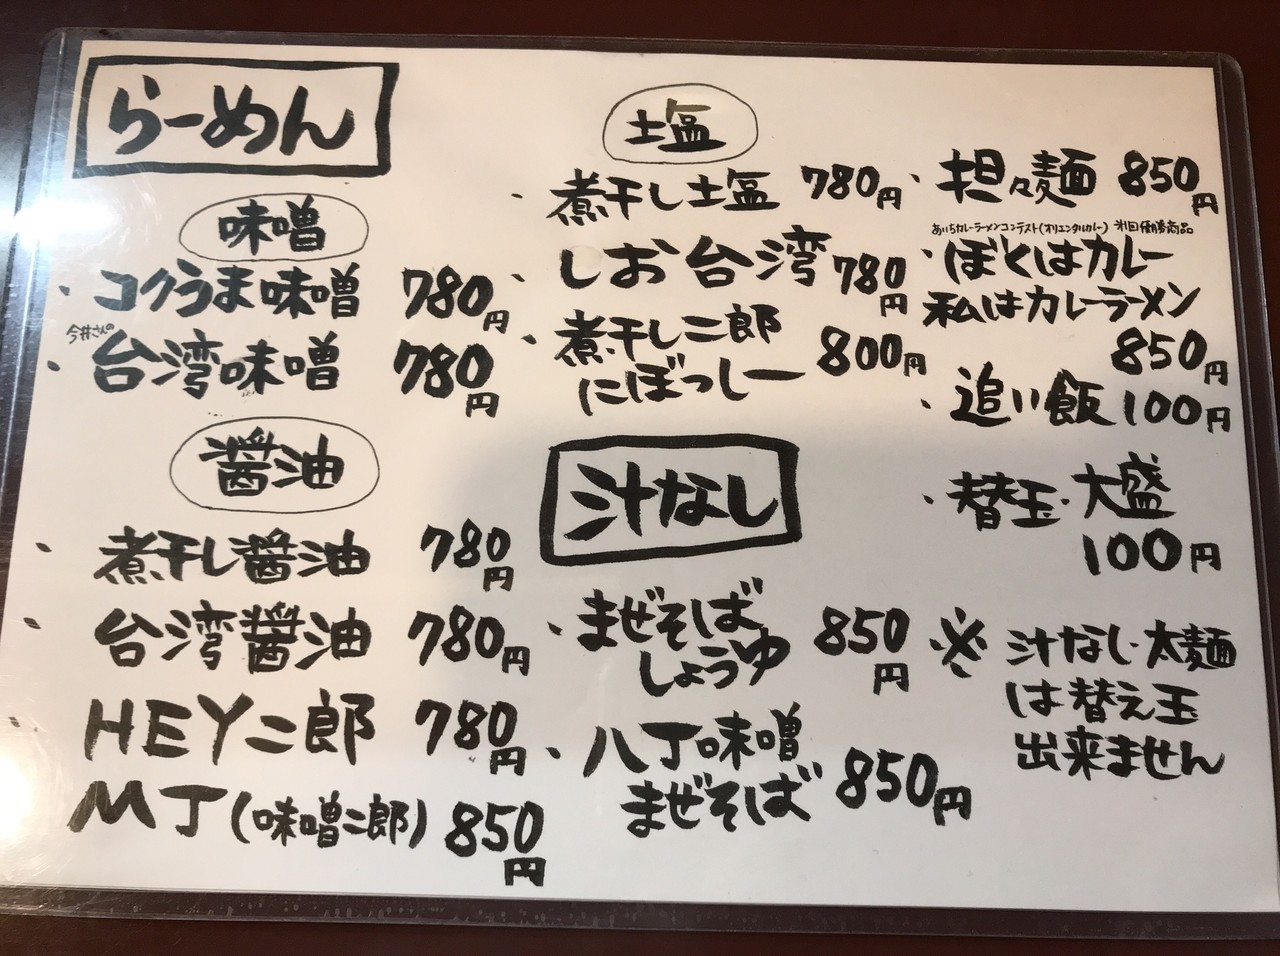 らーめん
味噌
・コクうま味噌 780円
今井さんの
・台湾味噌 780円
醤油
・煮干し醤油 780円
・台湾醤油 780円
・HEY二郎 780円
MJ(味噌二郎) 850円
塩
・煮干し塩 780円
・しお台湾 780円
・煮干し二郎
にぼっしー 800円
汁なし
・まぜそば
しょうゆ 850円
・八丁味噌
まぜそば 850円
・担々麺 850円
あいちカレーラーメンコンテスト(オリエンタルカレー) 優勝商品
・ぼくはカレー
私はカレーラーメン
850円
・追い飯 100円
・替玉・大盛
100円
※ 汁なし・太麺
は替え玉
出来ません